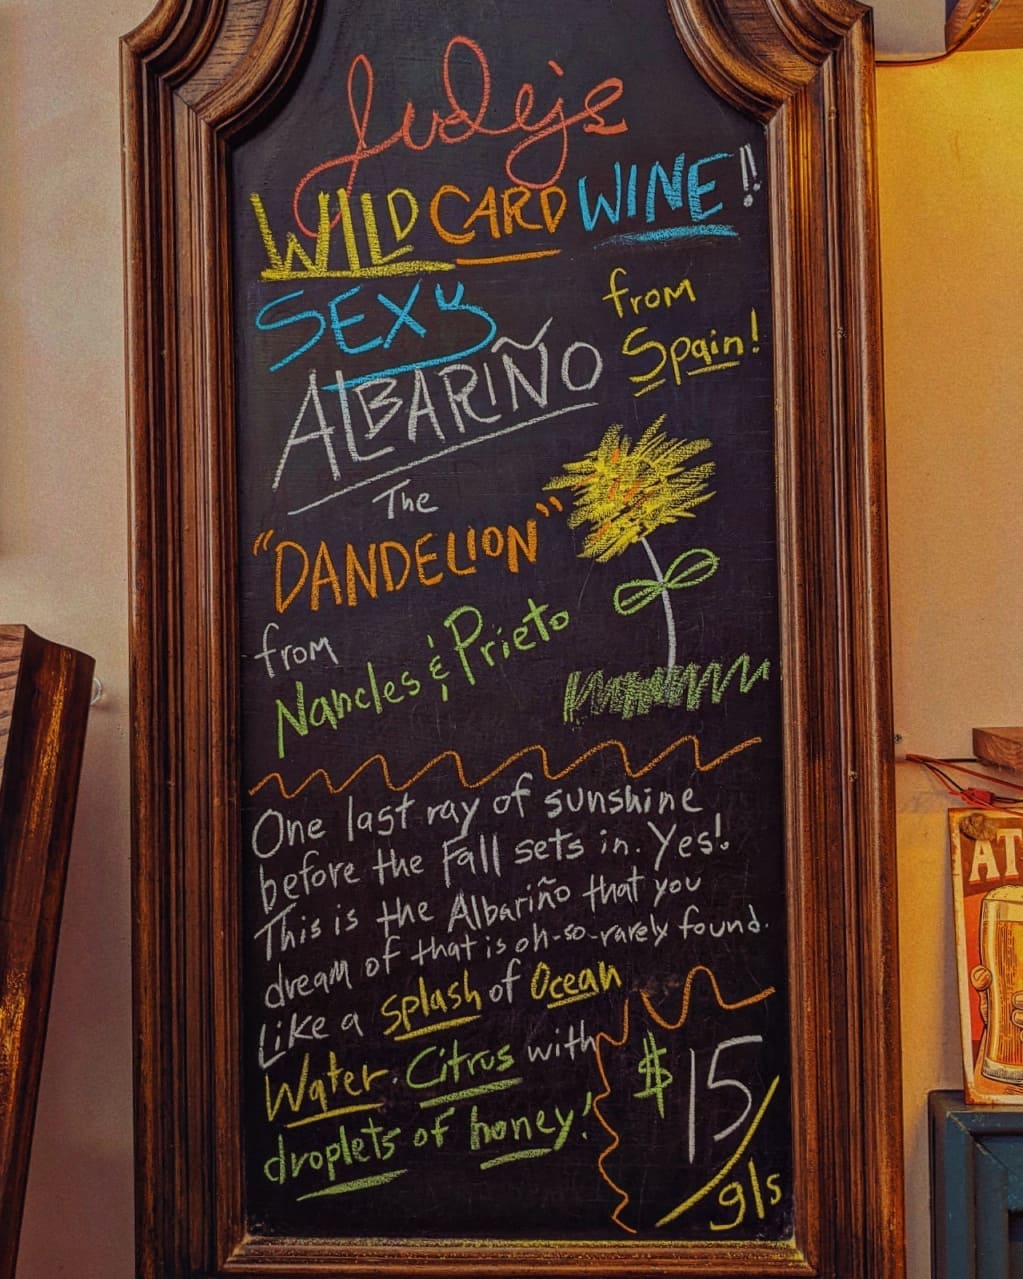 Judej's
WILD CARD WINE!!
SEXY
from
Spain!
ALBARIÑO
The
"DANDELION"
from
Nancles & Prieto
One last ray of sunshine
before the Fall sets in. Yes!
This is the Albariño that you
dream of that is oh-so-rarely found.
Like a splash of Ocean
Water. Citrus with
droplets of honey!
$15/gls
AT